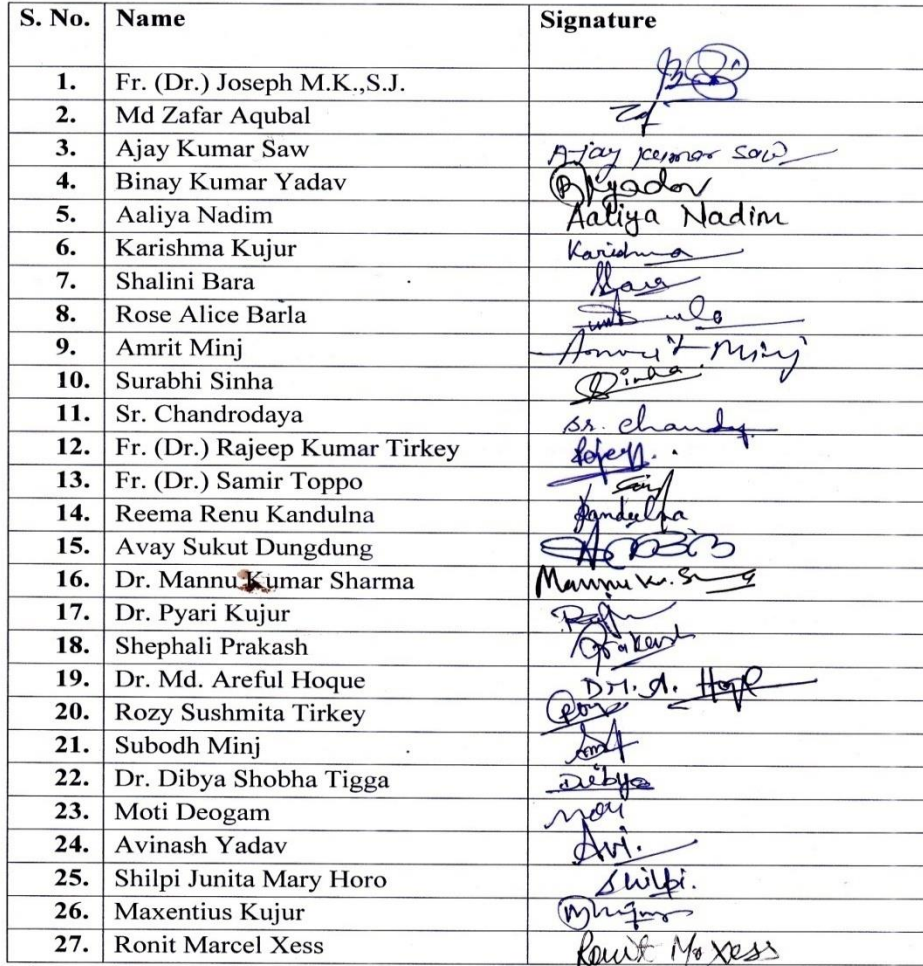 S. No. Name Signature
1. Fr. (Dr.) Joseph M.K.,S.J.
2. Md Zafar Aqubal
3. Ajay Kumar Saw Ajay kumar Saw
4. Binay Kumar Yadav Bkyadav
5. Aaliya Nadim Aaliya Nadim
6. Karishma Kujur Karishma
7. Shalini Bara
8. Rose Alice Barla
9. Amrit Minj Amrit Minj
10. Surabhi Sinha Sinha
11. Sr. Chandrodaya Sr.
12. Fr. (Dr.) Rajeep Kumar Tirkey
13. Fr. (Dr.) Samir Toppo
14. Reema Renu Kandulna Kandulna
15. Avay Sukut Dungdung
16. Dr. Mannu Kumar Sharma Mannu Kr.
17. Dr. Pyari Kujur
18. Shephali Prakash Prakash
19. Dr. Md. Areful Hoque
20. Rozy Sushmita Tirkey
21. Subodh Minj
22. Dr. Dibya Shobha Tigga Dibya
23. Moti Deogam
24. Avinash Yadav Avi.
25. Shilpi Junita Mary Horo Shilpi.
26. Maxentius Kujur
27. Ronit Marcel Xess Ronit M. Xess